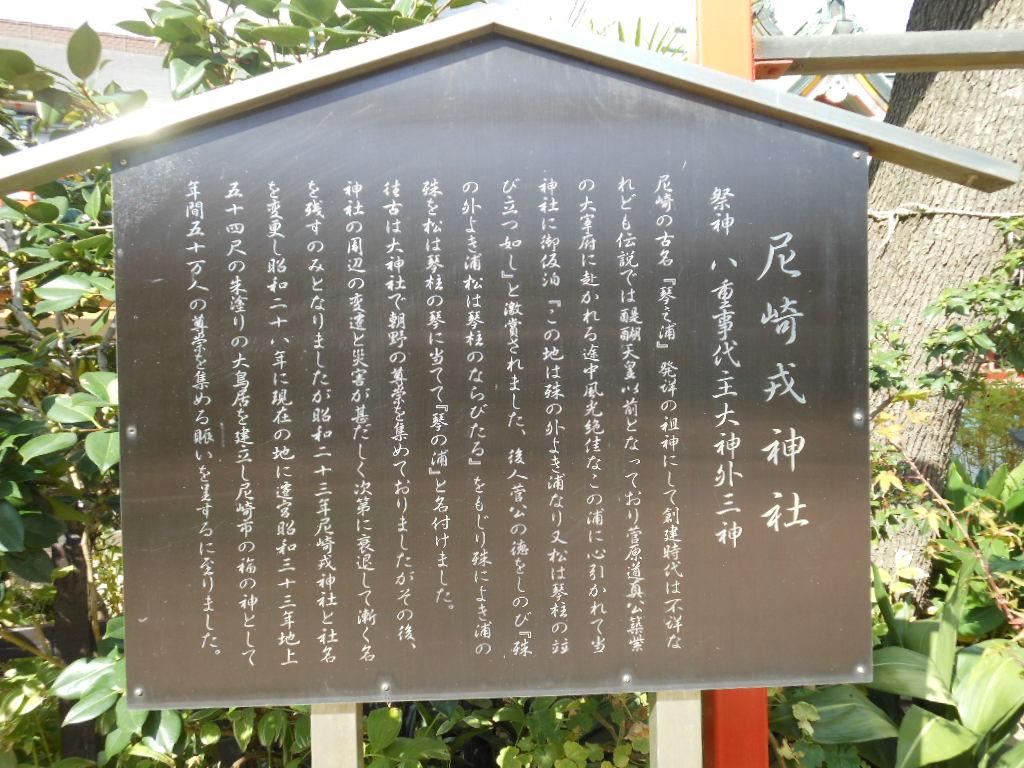 尼崎戎神社
祭神 八重事代主大神外三神
尼崎の古名『琴之浦』発祥の祖神にして創建時代は不詳な
れども伝説では醍醐天皇以前となっており菅原道真公築紫
の大宰府に赴かれる途中風光絶佳なこの浦に心引かれて当
神社に御仮泊『この地は殊の外よき浦なり又松は琴柱の並
び立つ如し』と激賞されました、後人菅公の徳をしのび『殊
の外よき浦松は琴柱のならびたる』をもじり殊によき浦の
殊を松は琴柱の琴に当てて『琴の浦』と名付けました。
往古は大神社で朝野の尊崇を集めておりましたがその後、
神社の周辺の変遷と災害が甚だしく次第に衰退して漸く名
を残すのみとなりましたが昭和二十三年尼崎戎神社と社名
を変更し昭和二十八年に現在の地に遷宮昭和三十三年地上
五十四尺の朱塗りの大鳥居を建立し尼崎市の福の神として
年間五十万人の尊崇を集める賑いを呈するに至りました。